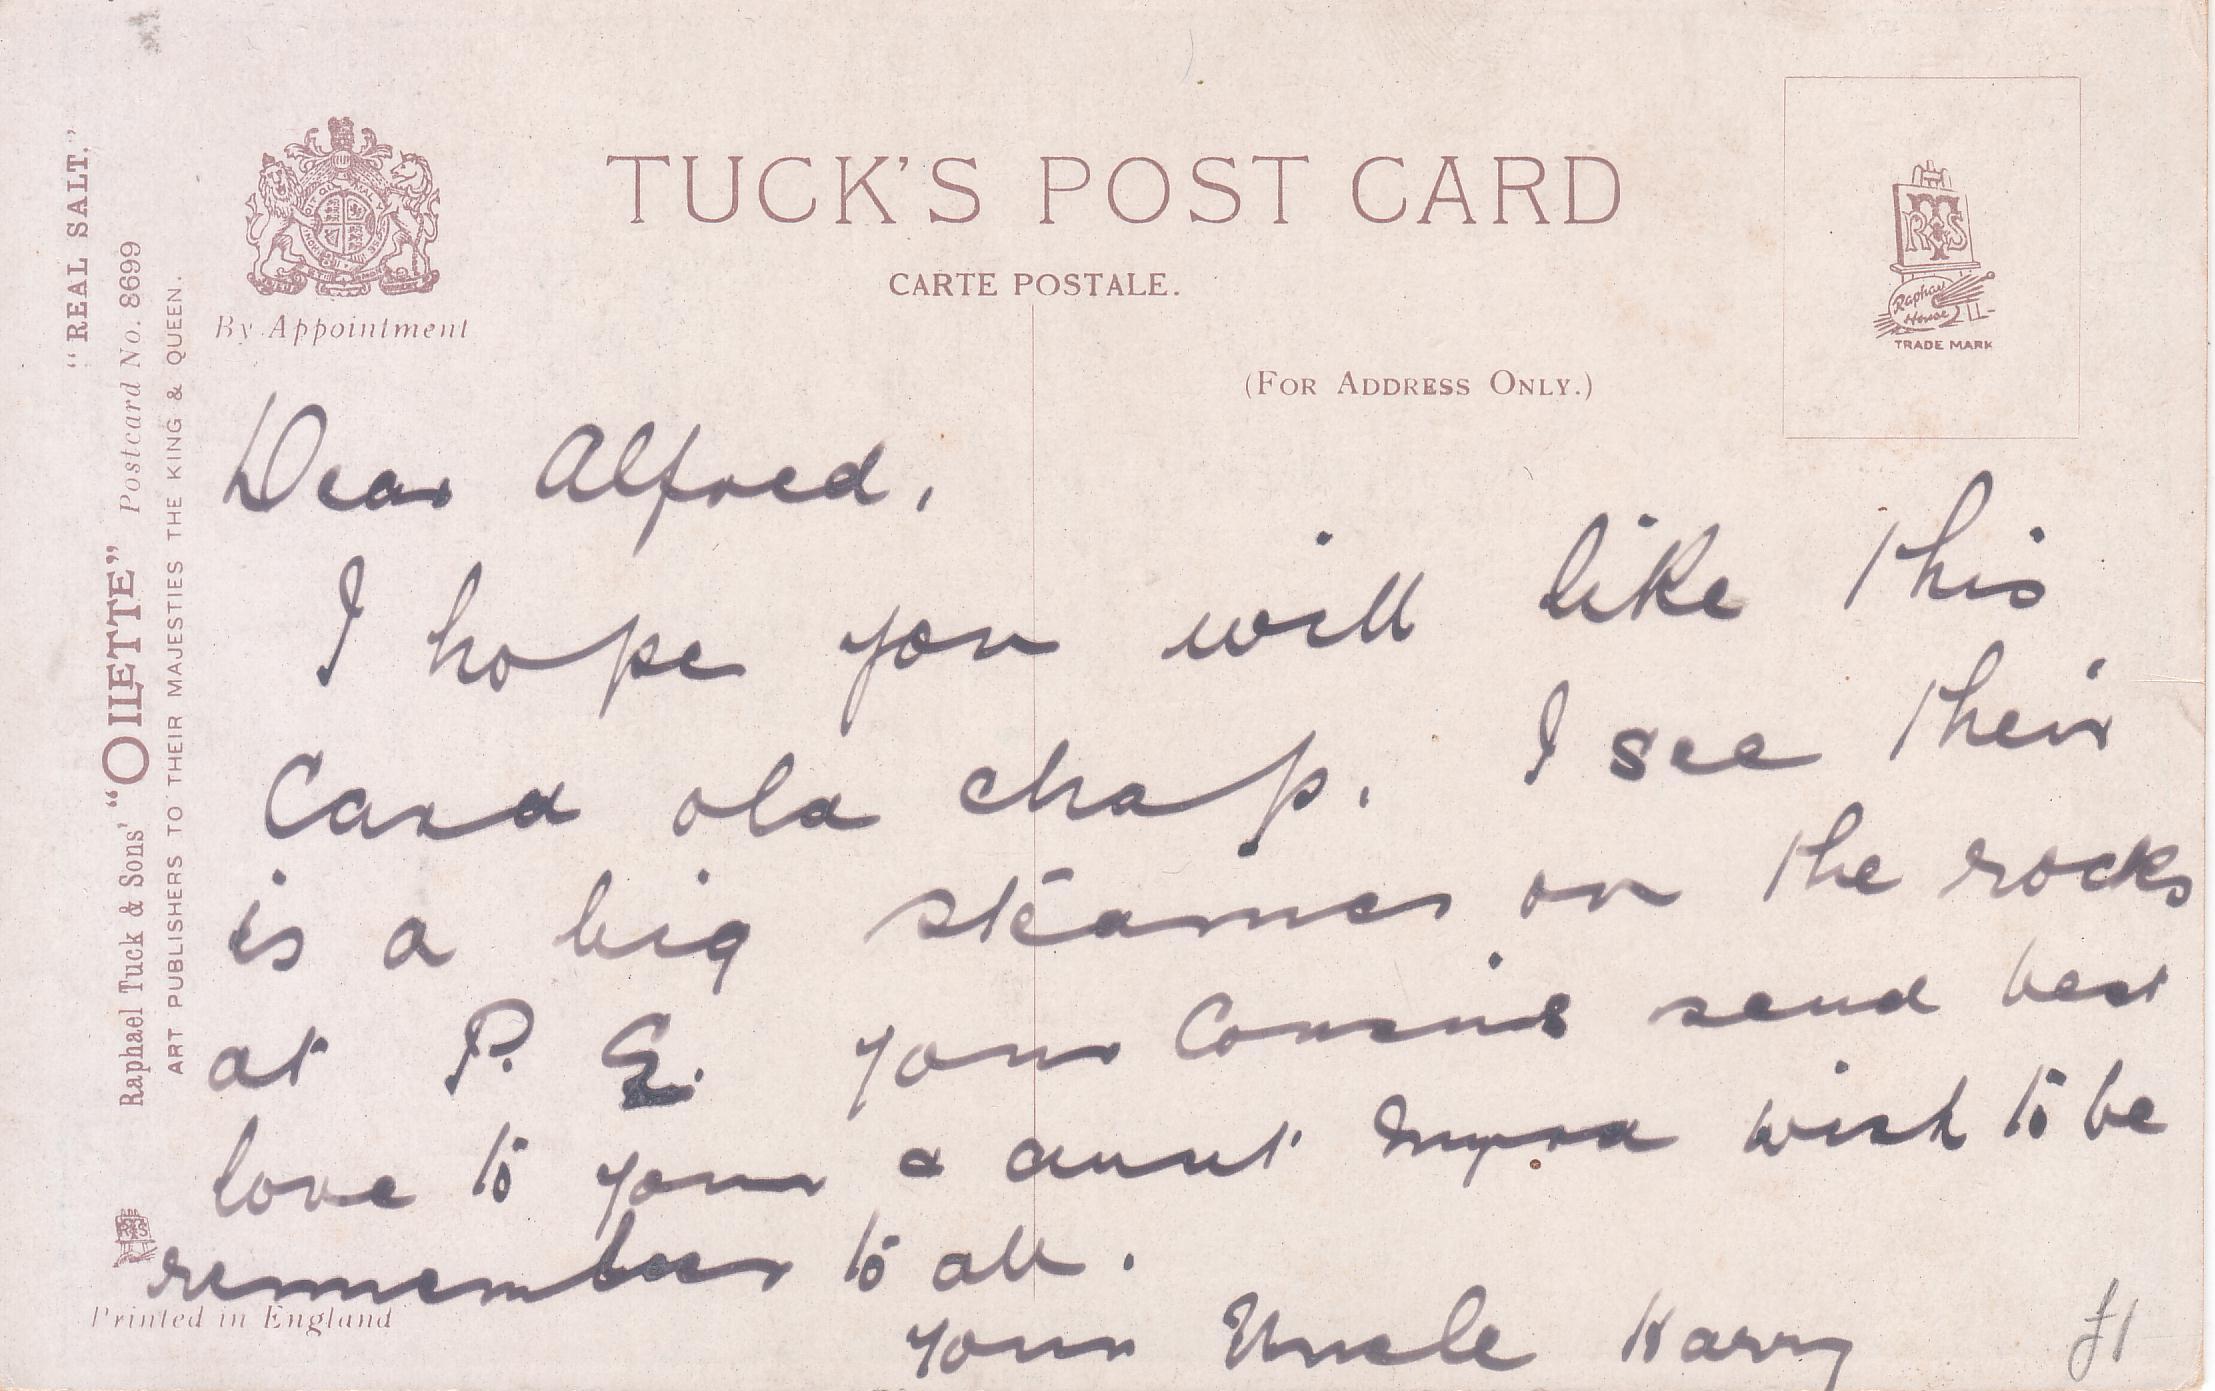 TUCK'S POST CARD
CARTE POSTALE.
(FOR ADDRESS ONLY.)
By Appointment
RT&S
Raphael
House
TRADE MARK
"REAL SALT."
Raphael Tuck & Sons' "OILETTE" Postcard No. 8699
ART PUBLISHERS TO THEIR MAJESTIES THE KING & QUEEN.
Dear Alfred,
I hope you will like this
Card old chap. I see their
is a big steamer on the rocks
at P. E. your Cousins send best
love to your & aunt Myra wish to be
remember to all.
your Uncle Harry
£1
RT&S
Printed in England